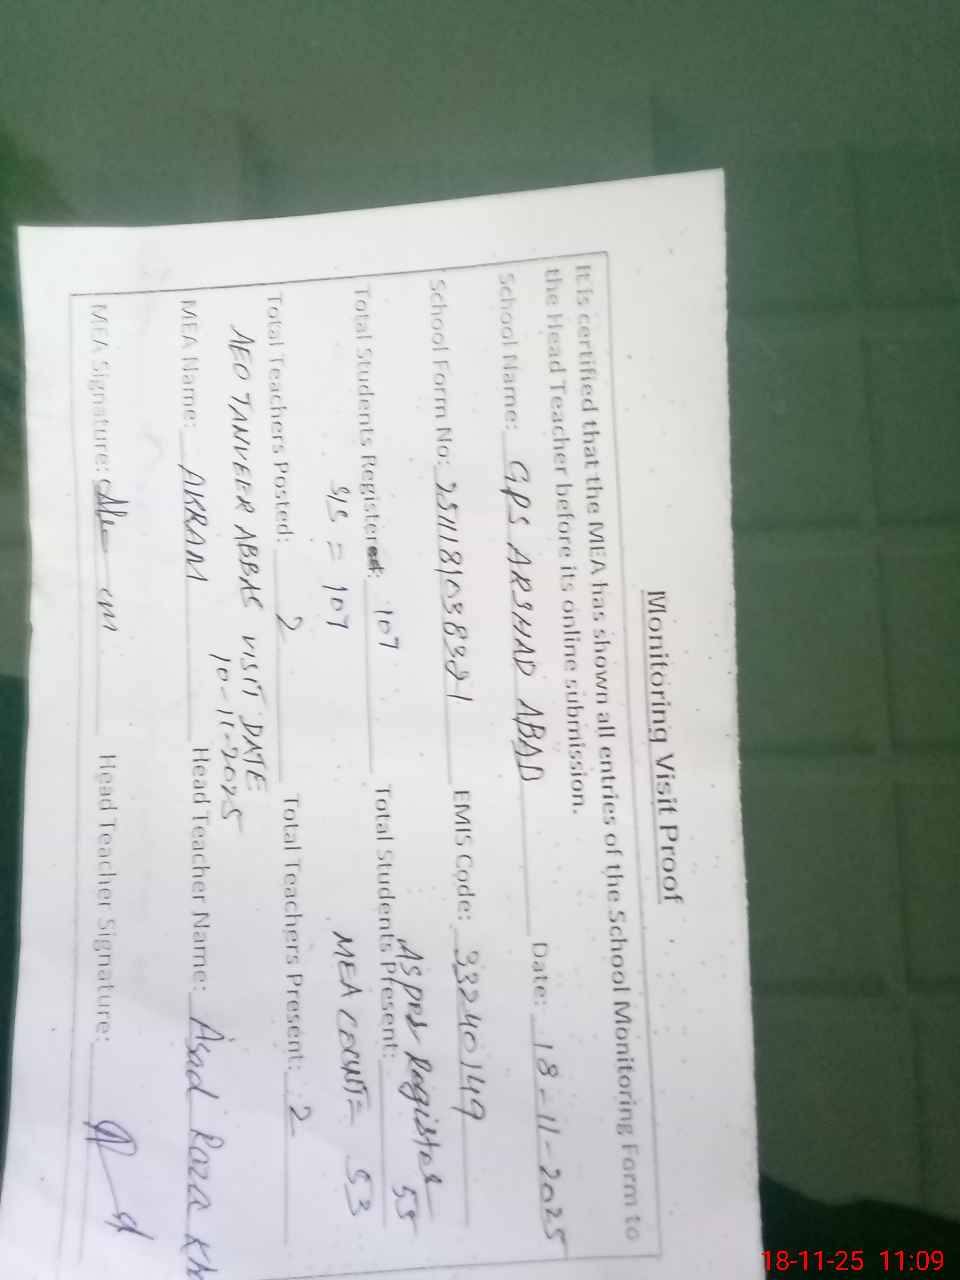 Monitoring Visit Proof
It is certified that the MEA has shown all entries of the School Monitoring Form to
the Head Teacher before its online submission.
School Name: GPS ARSHAD ABAD Date: 18-11-2025
School Form No: 2511181038321 EMIS Code: 33240149
As per Register
Total Students Registered: 107 Total Students Present: 55
SIS = 107 MEA COUNT = 53
Total Teachers Posted: 2 Total Teachers Present: 2
AEO TANVEER ABBAS VISIT DATE
10-11-2025
MEA Name: AKRAM Head Teacher Name: Asad Raza Kh
MEA Signature: Head Teacher Signature:
18-11-25 11:09